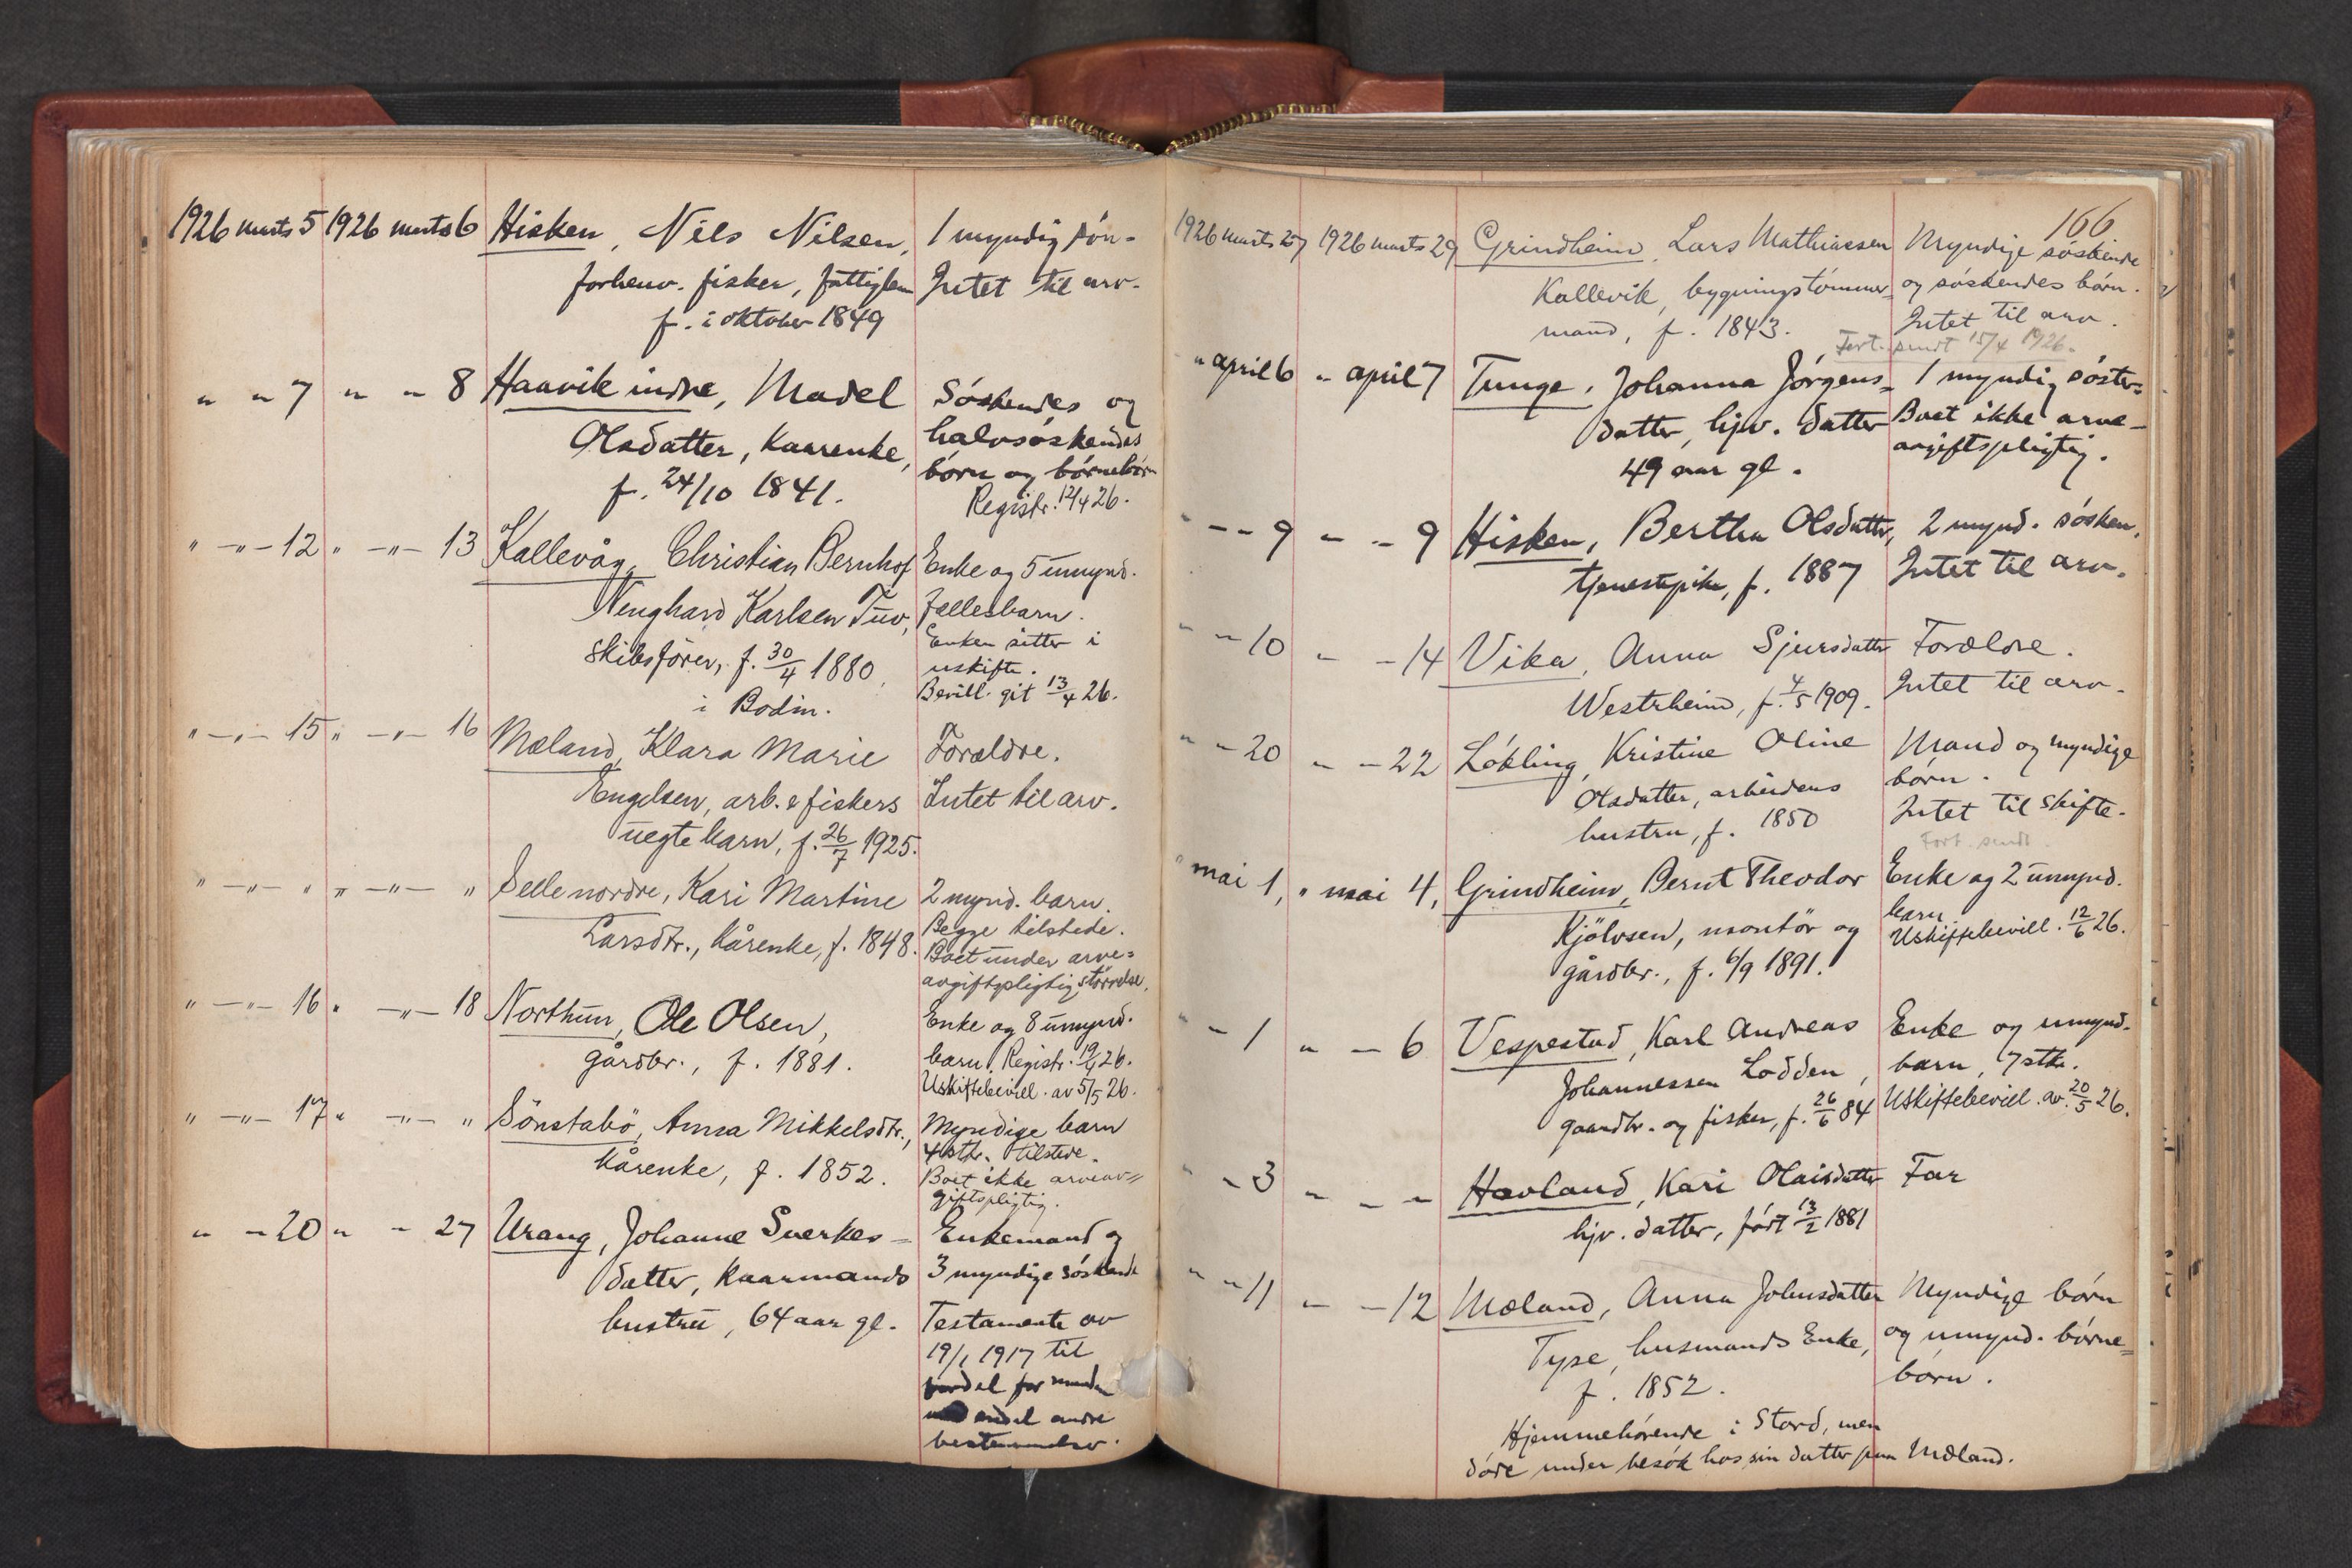 1926 marts 5 1926 marts 6 Hisken, Nils Nilsen, 1 myndig søn.
forhenv. fisker, fattiglem Intet til arv.
f. i oktober 1849
" " 7 " " 8 Haavik indre, Madel Søskendes og
Olsdatter, kaarenke, halvsøskendes
f. 24/10 1841. børn og børnebørn
Registr. 12/4 26.
" -"- 12 " -"- 13 Kallevåg, Christian Bernhof Enke og 5 umynd.
Karlsen Tuv, fællesbarn.
skibsfører, f. 30/4 1880, Enken sitter i
uskifte.
i Bodin. Bevill. git 13/4 26.
" -"- 15 " -"- 16 Mæland, Klara Marie Forældre.
Engelsen, arb. & fiskers Intet til arv.
uegte barn, f. 26/7 1925.
" -"- " " -"- " Selle nordre, Kari Martine 2 mynd. barn.
Larsdtr., kårenke, f. 1848. Begge tilstede.
Boet under arve=
avgiftspligtig størrelse.
" -"- 16 " -"- 18 Northun, Ole Olsen, Enke og 8 umynd.
gårdbr., f. 1881. barn. Registr. 19/4 26.
Uskiftebevill. av 5/5 26.
" -"- 17 " -"- " Sönstabö, Anna Mikkelsdtr., Myndige barn
kårenke, f. 1852. 4 stk. tilstede.
Boet ikke arveav=
giftspligtig.
" " 20 " " 27 Urang, Johanne Sverkes= Enkemand og
datter, kaarmands 3 myndige søskende
hustru, 64 aar gl. Testamente av
19/1 1917 til
fordel for manden
endel andre
bestemmelser.
166
1926 marts 27 1926 marts 29 Grindheim, Lars Mathiassen Myndige søskende
Kallevik, bygningstømmer= og søskendes børn.
mand, f. 1843. Intet til arv.
Fort. sendt 15/4 1926.
" april 6 " april 7 Tunge, Johanna Jørgens= 1 myndig søster.
datter, hjv. datter Boet ikke arve=
49 aar gl. avgiftspligtig.
" " 9 " " 9 Hisken, Bertha Olsdatter, 2 mynd. søsken.
tjenestepike, f. 1887 Intet til arv.
" " 10 " " 14 Vika, Anna Sjursdatter Forældre.
Westrheim, f. 4/5 1909. Intet til arv.
" " 20 " " 22 Løkling, Kristine Oline Mand og myndige
Olsdatter, arbeiders børn.
hustru, f. 1850 Intet til skifte.
Fort. sendt.
" mai 1, " mai 4, Grindheim, Bernt Theodor Enke og 2 umynd.
Kjölvsen, montör og barn
gårdbr., f. 6/9 1891. Uskiftebevill. 12/6 26.
" " 1 " " 6 Vespestad, Karl Andreas Enke og umynd.
Johannessen Lodden, barn, 7 stk.
gaardbr. og fisker, f. 26/6 84 Uskiftebevill. av 20/5 26.
" " 3 " " " Hovland, Kari Olaisdatter Far
hjv. datter, født 13/2 1881
" " 11 " " 12 Mæland, Anna Johnsdatter Myndige børn
Tyse, husmands Enke, og umynd. børne=
f. 1852. børn.
Hjemmehørende i Stord, men
døde under besøk hos sin datter paa Mæland.